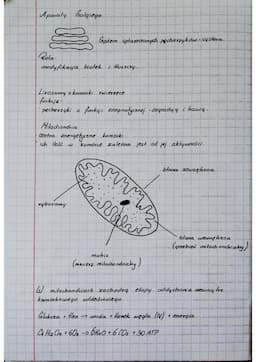 Aparaty Golgiego
System spłaszczonych pęcherzyków - cystern
Rola:
modyfikacja białek i tłuszczy.
Lizosomy w komórki zwierzęce
funkcja:
pęcherzyki o funkcji enzymatycznej
Mitochondria
centra energetyczne komórki
ich ilość w komórce zależna jest od jej aktywności
błona zewnętrzna
rybosomy
błona wewnętrzna
(grzebień mitochondrialny)
matrix
(macierz mitochondrialny)
W mitochondriach zachodzą etapy oddychania
komórkowego
Glukoza + tlen → woda + tlenek węgla (IV) + energia
C6H12O6 + 6O2 → 6H2O + 6CO2 + 30 ATP